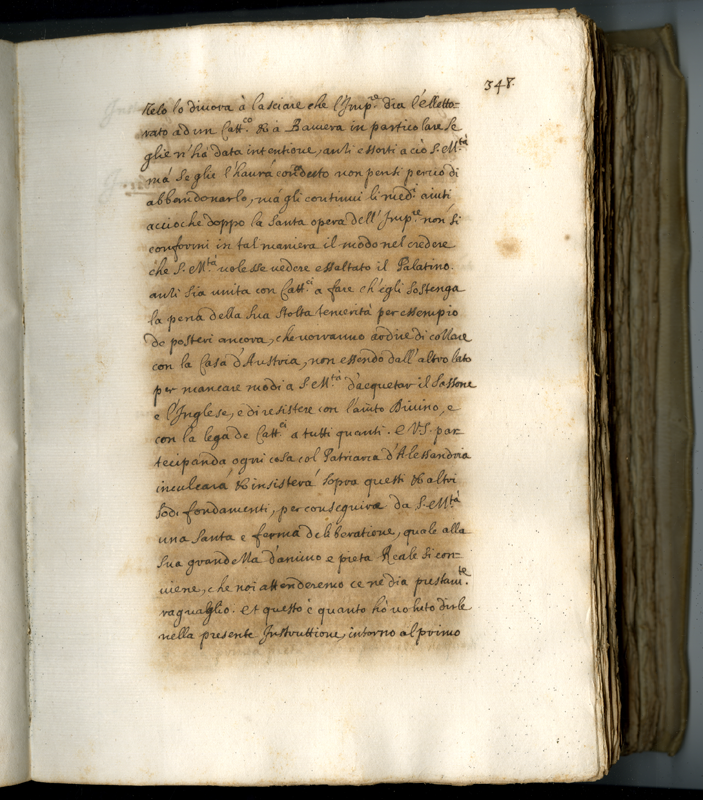 348.
Zelo lo divora à lasciare che l'Imp.re dia l'eletto-
rato ad un Catt.co & à Baviera in particolare se
glie n'hà data intentione, anzi essorti a ciò S. M.tà
má se glie l'haurà condotto non pensi perciò di
abbandonarlo, má gli continui li med.i aiuti
acciòche doppo la santa opera dell'Imp.re non si
conformi in tal maniera il modo nel credere
che S. M.tà volesse vedere essaltato il Palatino.
anzi sia unita con Catt.ci a fare ch'egli sostenga
la pena della sua stolta temerità per essempio
de posteri ancora, che vorranno ardire di collare
con la Casa d'Austria, non essendo dall'altro lato
per mancare modi a S. M.tà d'acquetar il Sassone
e l'Inglese, e di resistere con l'aiuto Divino, e
con la lega de Catt.ci a tutti quanti. e V.S. par-
tecipando ogni cosa col Patriarca d'Alessandria
inculcará & insisterá sopra questi & altri
sodi fondamenti, per conseguire da S. M.tà
una santa e ferma deliberatione, quale alla
sua grandezza d'animo e pietà Reale si con-
viene, che noi attenderemo ce ne dia prestam.te
raguaglio. et questo è quanto hò voluto dirle
nella presente Instruttione, intorno al primo